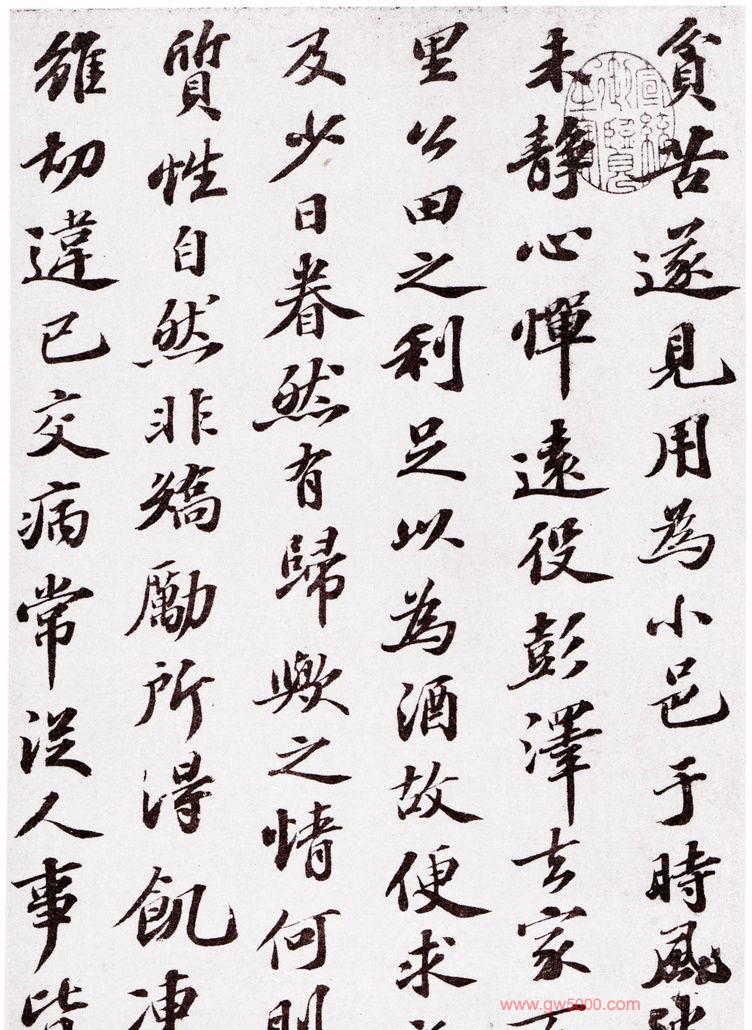 貧苦遂見用為小邑于時風
未静心憚遠役彭澤去家
里公田之利足以為酒故便求
及少日眷然有歸歟之情何則
質性自然非矯勵所得飢凍
雖切違己交病常從人事皆
宣統
御覽
之寶
www.gw5000.com